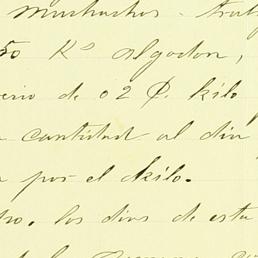 muchachos. trab
50 Ks algodon,
erio de 02 P. kilo
cantidad al dia
por el kilo.
ro. los dias de esta